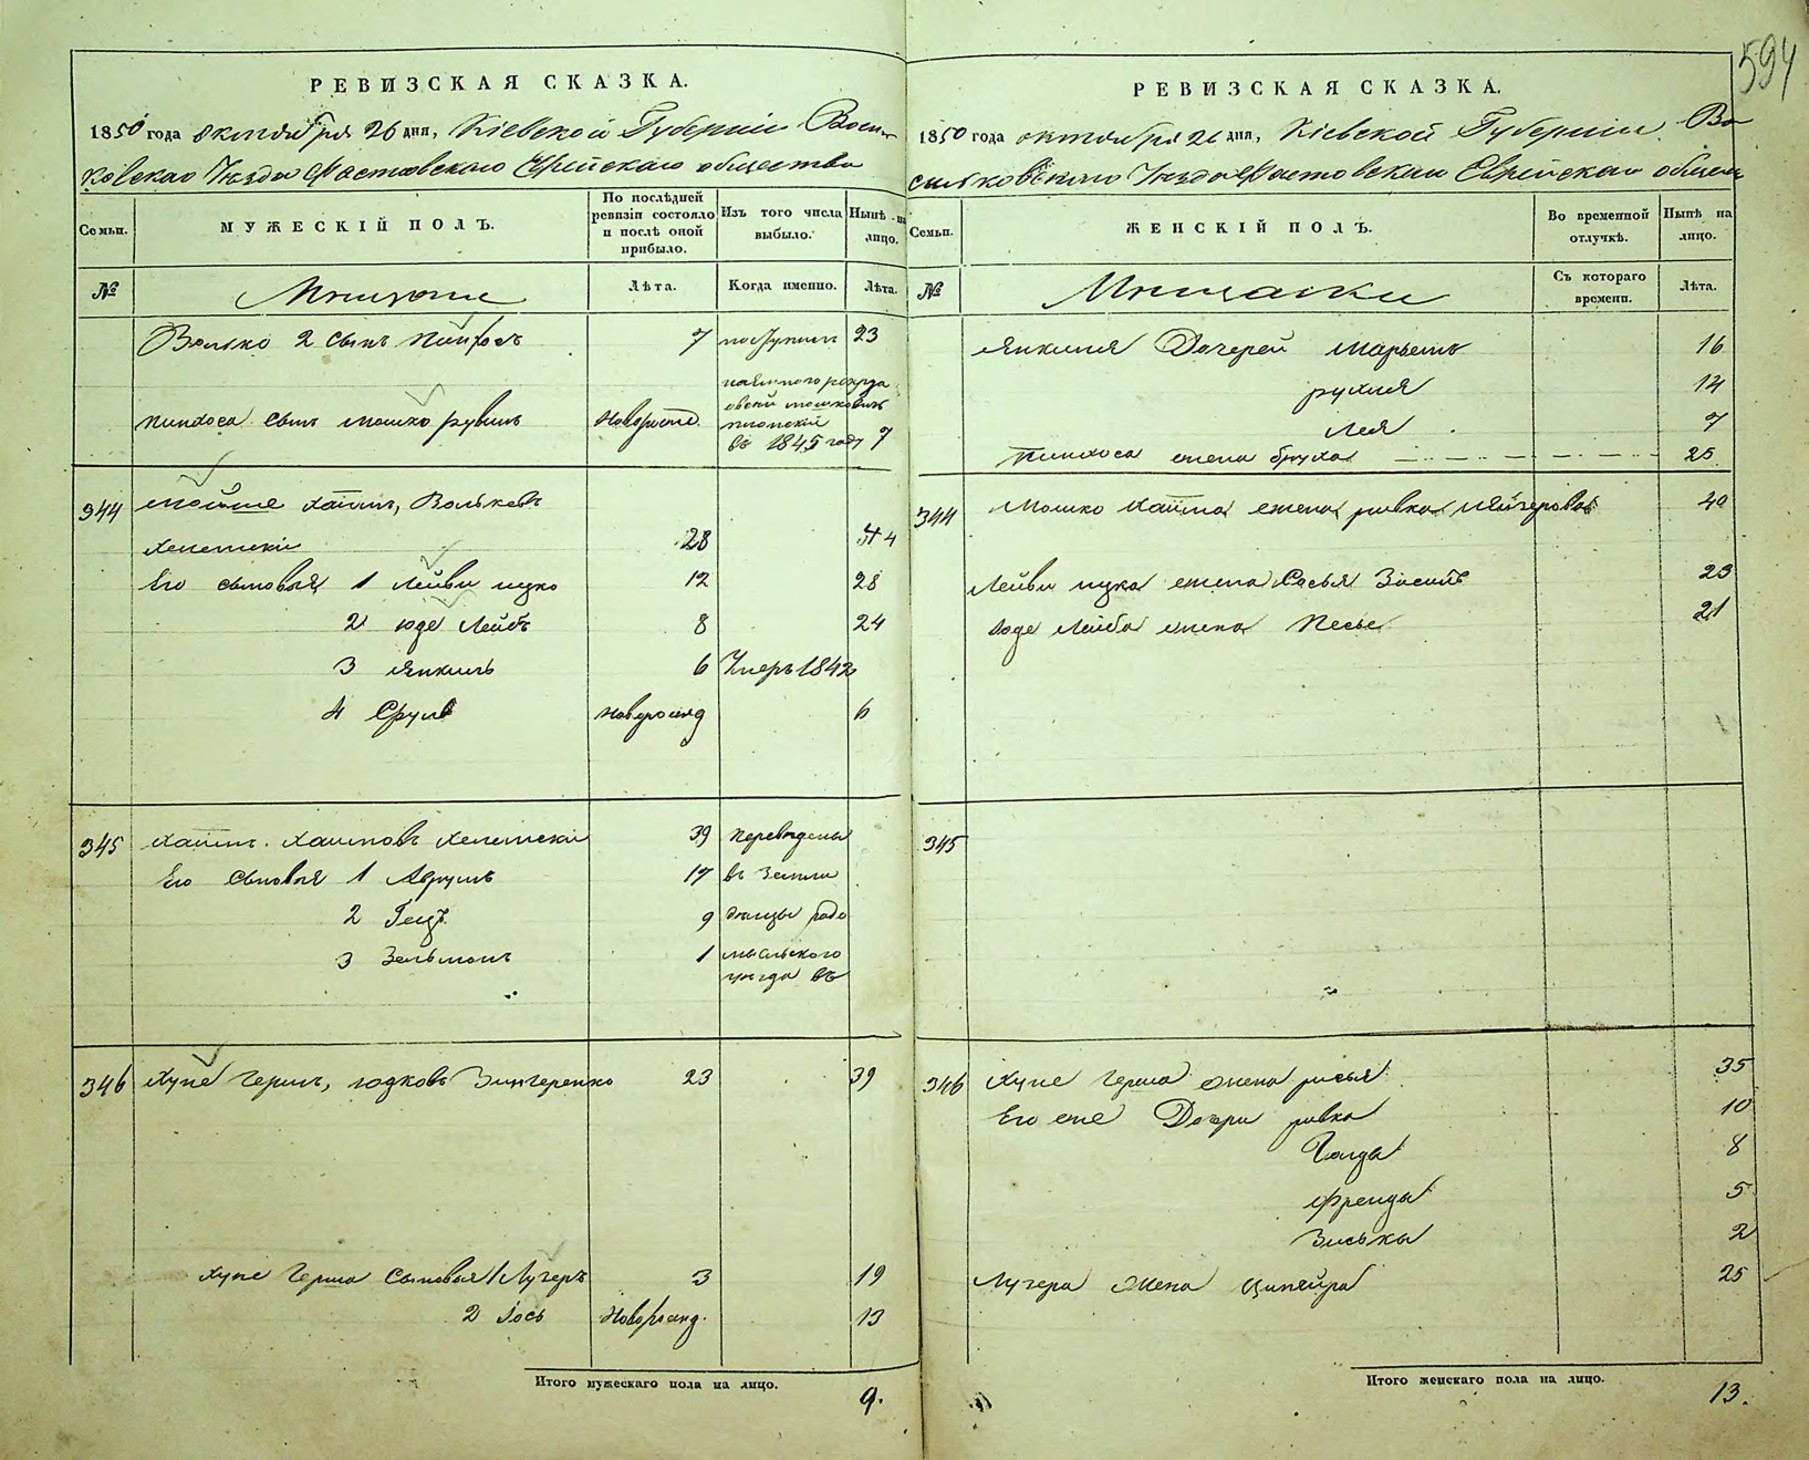 594
РЕВИЗСКАЯ СКАЗКА.
1850 года октября 26 дня, Кіевской Губерніи Васил
ковскаго Уезда Фастовскаго Еврейскаго общества
Семьи.
МУЖЕСКІЙ ПОЛЪ.
По послѣдней ревизіи состояло и послѣ оной прибыло.
Изъ того числа выбыло.
Нынѣ на лицо.
№
Мещане
Лѣта.
Когда именно.
Лѣта.
Волько 2 сынъ Пинхосъ 7 поступилъ 23
Пинхоса сынъ Мошко Рувинъ Новорожд. въ 1845 году 7
344 Мойше Хаимъ, Вольковъ
28 44
Его сыновья 1 Лейви Ицко 12 28
2 Юде Лейбъ 8 24
3 Янкель 6 Умеръ 1842
4 Сруль Новорожд 6
345 Хаимъ Хаимовъ 39 Переведены
Его сыновья 1 Аврумъ 17 въ Земле
2 Гецъ 9 дельцы Радо
3 Зельманъ 1 мысльского
уезда въ
346 Хуне Гершъ, Юдковъ Зингеренко 23 39
Хуне Герша Сыновья 1 Лузеръ 3 19
2 Iось Новорожд. 13
Итого мужескаго пола на лицо.
9.
РЕВИЗСКАЯ СКАЗКА.
1850 года октября 26 дня, Кіевской Губерніи Ва
сильковскаго Уезда Фастовскаго Еврейскаго общест
Семьи.
ЖЕНСКІЙ ПОЛЪ.
Во временной отлучкѣ.
Нынѣ на лицо.
№
Мещанки
Съ котораго времени.
Лѣта.
Янкеля Дочерей Марьемъ 16
Рухля 14
Лея 7
Пинхоса жена Бруха 25
344 Мошко Хаима жена Ривка 40
Лейви Ицка жена Сосья 23
Юде Лейба жена Песье 21
345
346 Хуне Герша жена Рися 35
Его же Дочери Ривка 10
Голда 8
Фрейда 5
Зиська 2
Лузера жена Ципейра 25
Итого женскаго пола на лицо.
13.